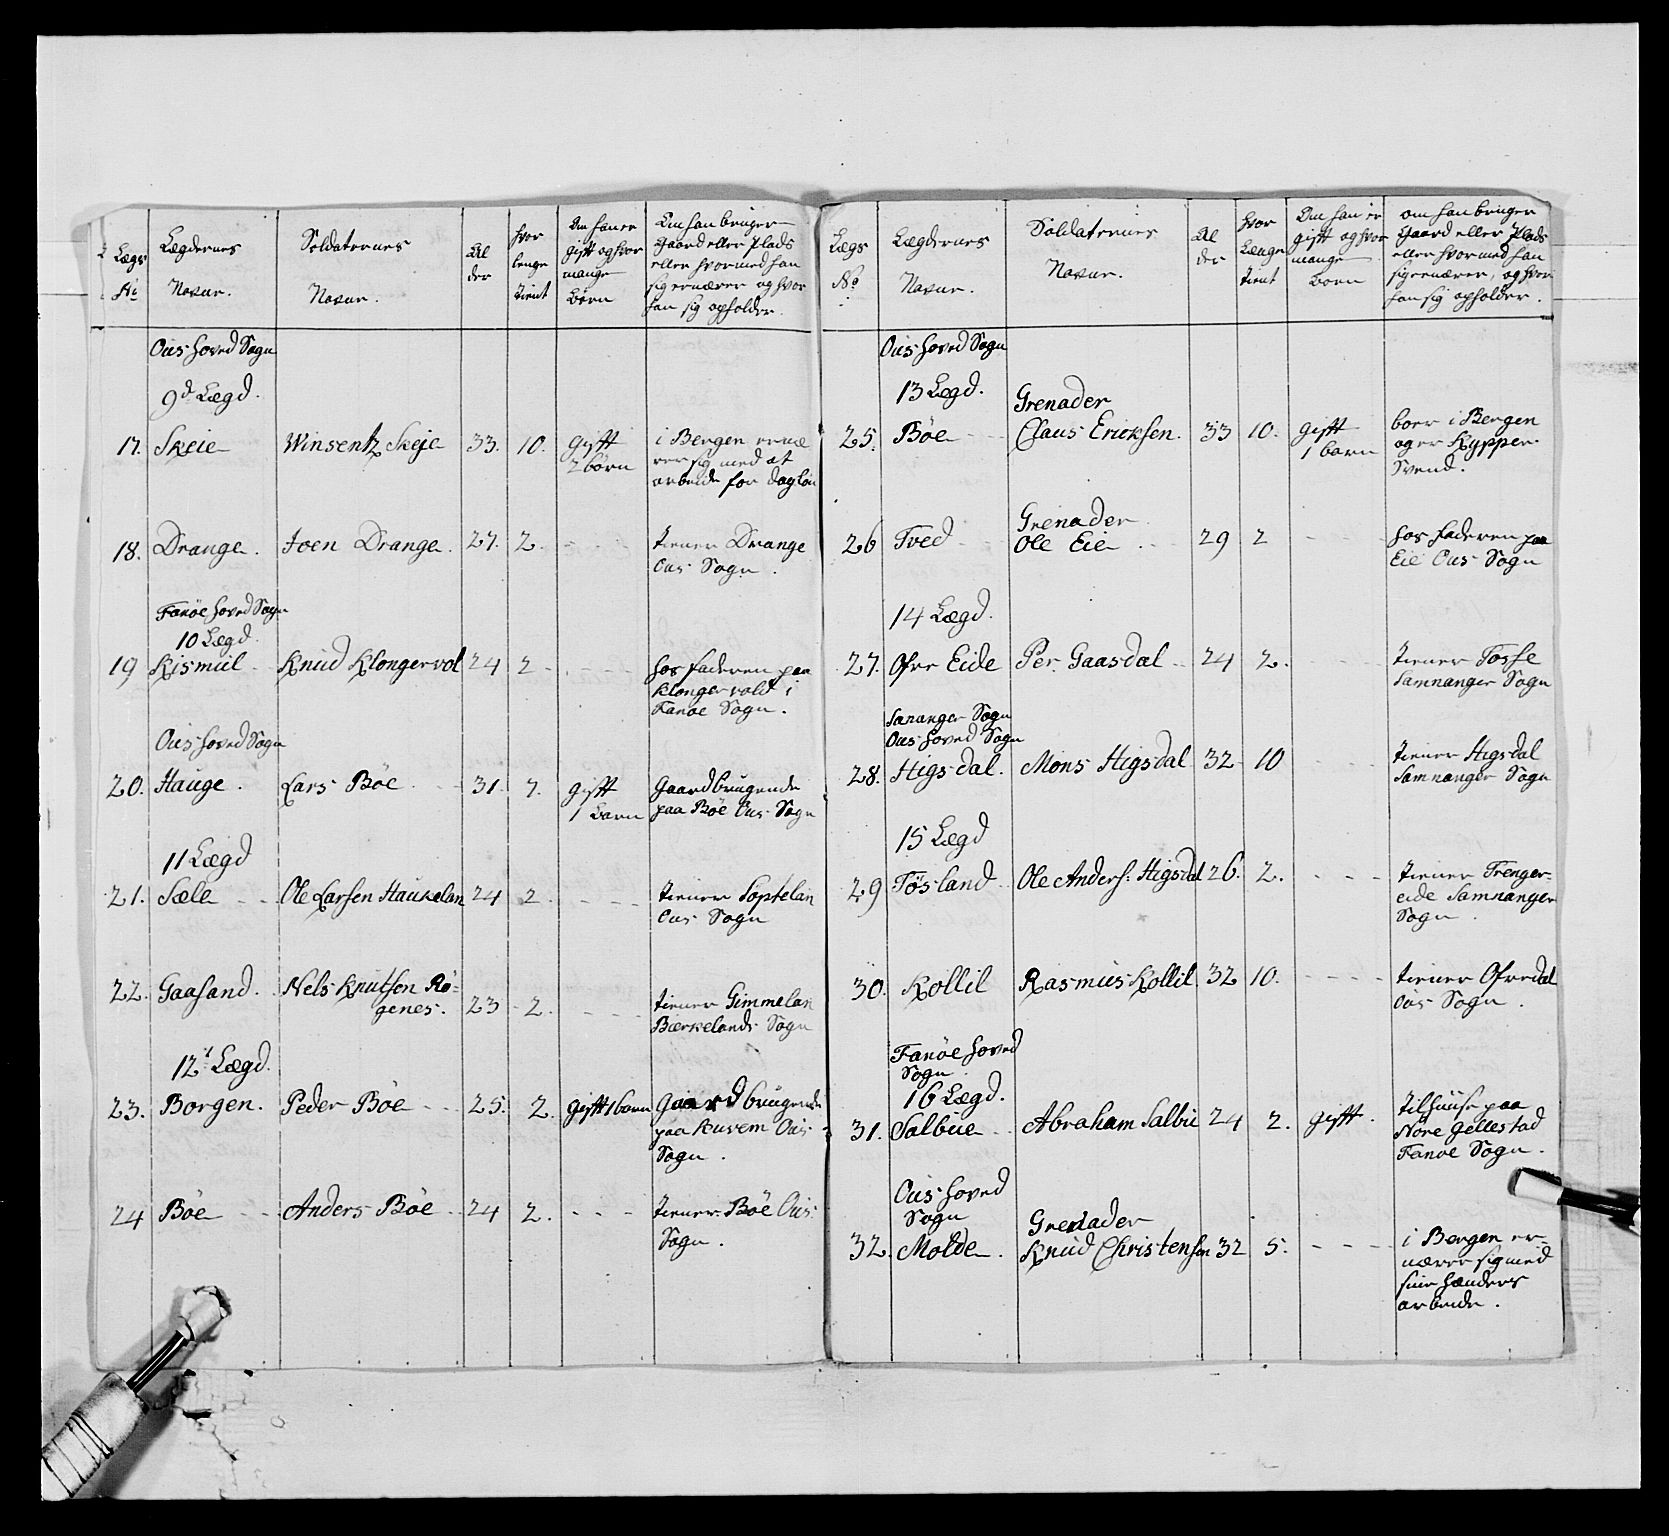 Lægs No
Lægdernes Navne.
Soldaternes Navne.
Alder
hvor længe tient
Om han er gift og hvor mange Børn
Om han bruger Gaard eller Plads eller hvormed han sig ernærer og hvor han sig opholder.
Ous Hoved Sogn
9d Lægd.
17. Skeie Winsentz Skeje 33. 10. gift 2 børn i Bergen ernærer sig med at arbeide for dagløn
18. Drange. Joen Drange. 27. 2. - - - tiener Drange Ous Sogn.
Fanöe Hoved Sogn
10 Lægd.
19 Kismül Knud Klongervol 24 2 - - - hos faderen paa Klongervold i Fanöe Sogn.
Ous Hoved Sogn
20. Hauge. Lars Böe 31. 7. gift 1 Barn Gaardbrugende paa Böe Ous Sogn
11 Lægd
21. Sæle Ole Larsen Haukelan 24 2. - - - tiener Söptelan Ous Sogn
22. Gaasand. Nels Knutsen Rögenes. 23 2. - - - tiener Gimmelan Bærkelands Sogn
12t Lægd.
23. Borgen. Peder Böe 25. 2. gift 1 barn Gaardbrugende paa Kuven Ous Sogn.
24 Böe Anders Böe 24 2. - - - tiener Böe Ous Sogn.
Lægs No
Lægdernes Navne.
Soldaternes Navne.
Alder
hvor Længe tient
Om han er gift og hvor mange born
om han bruger Gaard eller Plads eller hvormed han sig ernærer, og hvor han sig opholder.
Ous Hoved Sogn
13 Lægd.
25. Böe Grenader Claus Ericksen. 33 10. gift 1 barn boer i Bergen og er Kypper Svend.
26 Tved Grenader Ole Eie 29 2 - - - hos faderen paa Eie Ous Sogn
14 Lægd.
27. Ofre Eide Per Gaasdal 24 2. - - - tiener Tosse Samnanger Sogn
Sananger Sogn
Ous Hoved Sogn
28. Higsdal. Mons Higsdal 32 10 - - - tiener Higsdal Samnanger Sogn
15 Lægd
29 Tösland Ole Anders: Higsdal 26. 2. - - - tiener Trengereide Samnanger Sogn.
30. Kollil Rasmus Kollil 32 10. - - - tiener Ofredal Ous Sogn.
Fanöe Hoved Sogn
16 Lægd.
31. Salbue Abraham Salbu 24 2. gift. tilhuuse paa Nore Gellestad Fanoe Sogn.
Ous Hoved Sogn
32. Molde. Grenader Knud Christensen 32 5. - - - i Bergen ernærer sig med sine Hænders arbeide.